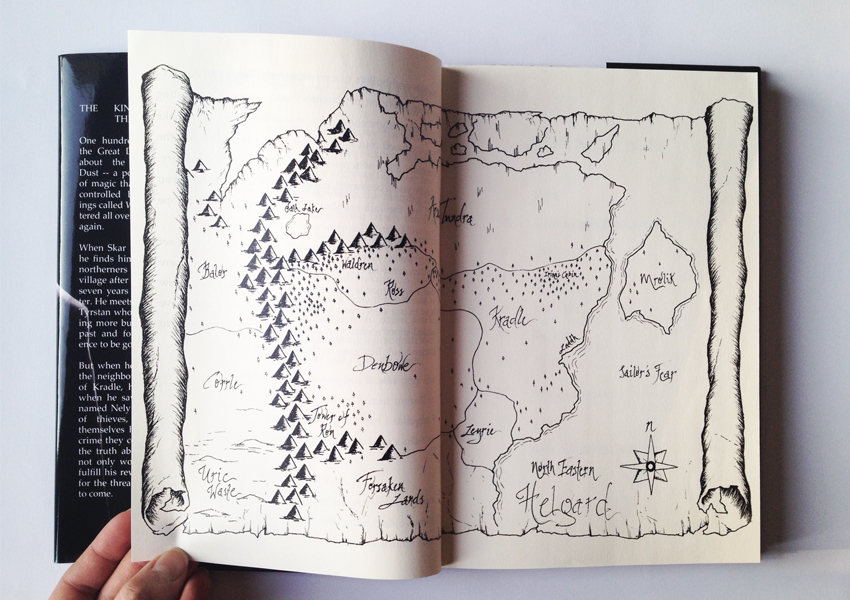 THE KIN
TH
One hundr
the Great D
about the
Dust -- a po
of magic tha
controlled b
ings called W
tered all ove
again.
When Skar
he finds him
northerners
village after
seven years
ter. He meets
Tyrstan who
ing more bu
past and fo
ence to be go
But when he
the neighbo
of Kradle, h
when he sav
named Nely
of thieves,
themselves h
crime they c
the truth ab
not only wo
fulfill his rev
for the threa
to come.
Tundra
Balor
Waldren
Ross
Mrolik
Kradle
Denbowe
Sailor's Fear
Corrle
Tower of
Ken
Zeyrie
n
Uric
Waste
Forsaken
Lands
North Eastern
Helgard